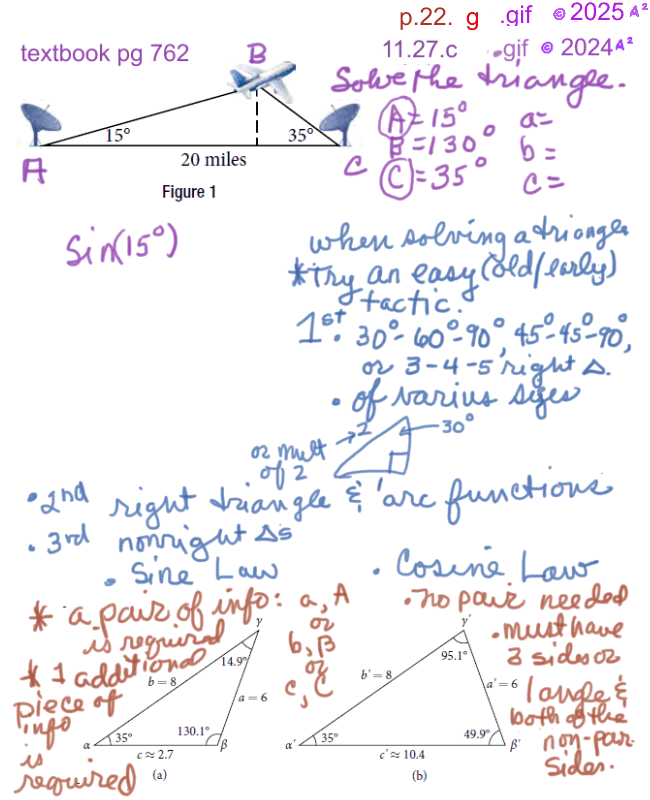 p.22. g .gif © 2025 A²
textbook pg 762
11.27.c .gif © 2024 A²
B
Solve the triangle.
15°
35°
20 miles
A
C
Figure 1
A = 15° a=
B = 130° b =
C = 35° c =
Sin(15°)
when solving a triangle
*Try an easy (old/early)
tactic.
1st. 30°-60°-90°, 45°-45°-90°,
or 3-4-5 right △.
• of varius sizes
or mult → 2
of 2
30°
• 2nd right triangle & 'arc functions
• 3rd nonright △s
• Sine Law
• Cosine Law
* a pair of info: a, A
is required
or
b, B
or
c, C
* 1 additional
piece of
info
is
required
γ
14.9°
b = 8
a = 6
35°
130.1°
α
β
c ≈ 2.7
(a)
• no pair needed
• must have
3 sides or
1 angle &
both of the
non-pair
sides.
γ'
95.1°
b' = 8
a' = 6
35°
49.9°
α'
β'
c' ≈ 10.4
(b)